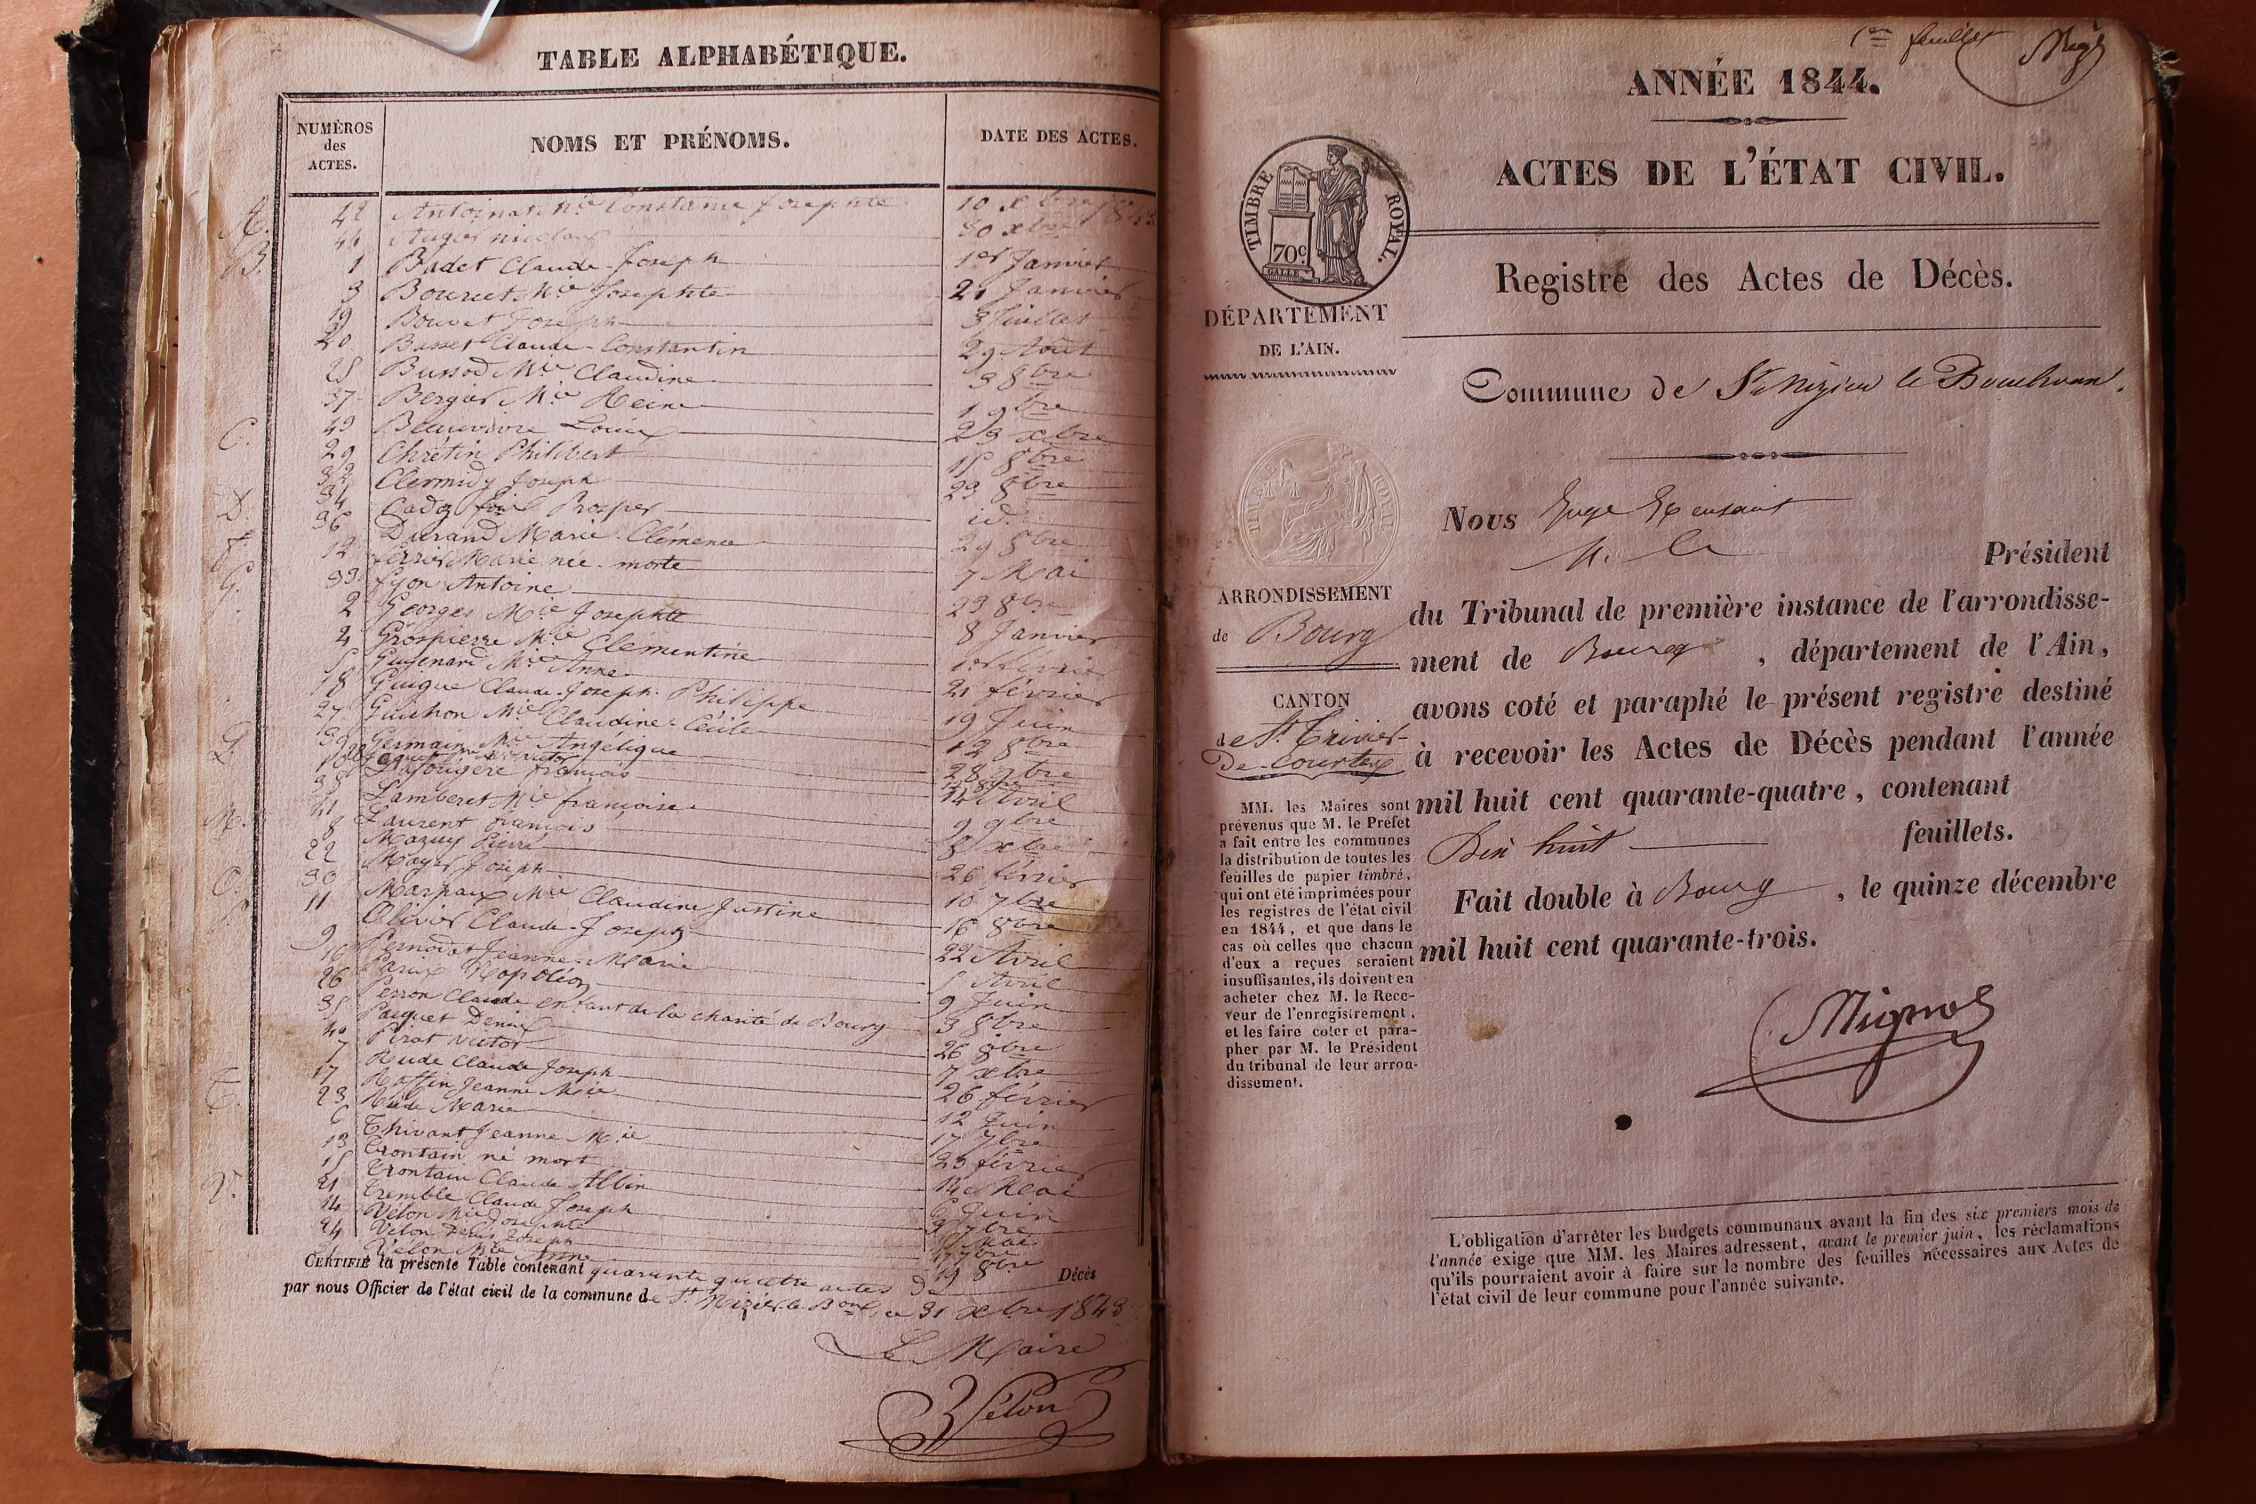 TABLE ALPHABÉTIQUE.
NUMÉROS
des
ACTES.
NOMS ET PRÉNOMS.
DATE DES ACTES.
A.
42 Antoinat Mie Constance Josephte 10 xbre
44 Auger Nicolas 30 xbre
B.
1 Badet Claude-Joseph 1er Janvier
3 Bourcet Mie Josephte 21 Janvier
19 Bouvet Joseph 3 Juillet
20 Basset Claude-Constantin 29 Aout
25 Bussod Mie Claudine 3 8bre
37 Bergier Mie Reine 1 9bre
43 Louise 23 xbre
C.
29 Chrétin Philibert 15 8bre
32 Clermidy Joseph 23 8bre
34 Cadoz Prosper id.
D.
36 Durand Marie-Clémence 29 8bre
F.
12 ferrier Marie née-morte 7 Mai
33 fyon Antoine 23 8bre
G.
2 Georges Mie Josephte 8 Janvier
4 Grospierre Mie Clémentine 1er février
5 Guyenard Mie Anne 21 février
18 Guigue Claude-Joseph-Philippe 19 Juin
27 Guichon Mie Claudine-Cécile 12 8bre
39 Germain Mie Angélique 28 9bre
L.
10 Lafougère françois 14 Avril
38 Lamberet Mie françoise 9 9bre
41 Laurent françois 8 xbre
M.
8 Mazuy Pierre 26 février
22 Mayer Joseph 10 7bre
30 Marpaux Mie Claudine Justine 16 8bre
O.
11 Olivier Claude-Joseph 22 Avril
P.
9 Pernodet Jeanne-Marie 5 Avril
16 Napoléon 9 Juin
26 Perron Claude enfant de la charité de Bourg 3 8bre
35 Paquet Denis 26 8bre
40 Pirat Victor 7 xbre
7 Rude Claude Joseph 26 février
17 Ruffin Jeanne Mie 12 Juin
23 Rude Marie 17 7bre
T.
6 Thivant Jeanne Mie 23 février
13 Trontain né mort 14 Mai
15 Trontain Claude Albin 6 Juin
21 Tremble Claude Joseph 3 7bre
V.
14 Vélon Mie Josephte Mai
24 Vélon Denis Joseph 17 7bre
Vélon Mie Anne 19 8bre
CERTIFIÉ la présente Table contenant quarante quatre actes de Décès
par nous Officier de l'état civil de la commune de St Nizier le Bouc ce 31 xbre 1843
Le Maire
Vélon
1er feuillet
ANNÉE 1844.
ACTES DE L'ÉTAT CIVIL.
TIMBRE ROYAL.
70c
GALLE
Registre des Actes de Décès.
DÉPARTEMENT
DE L'AIN.
Commune de St Nizier le Bouchoux.
Nous Juge
Président
ARRONDISSEMENT
de Bourg
du Tribunal de première instance de l'arrondisse-
ment de Bourg, département de l'Ain,
CANTON
de St Trivier-
De-Courtes
avons coté et paraphé le présent registre destiné
à recevoir les Actes de Décès pendant l'année
mil huit cent quarante-quatre, contenant
Dix huit feuillets.
Fait double à Bourg, le quinze décembre
mil huit cent quarante-trois.
MM. les Maires sont
prévenus que M. le Préfet
a fait entre les communes
la distribution de toutes les
feuilles de papier timbré,
qui ont été imprimées pour
les registres de l'état civil
en 1844, et que dans le
cas où celles que chacun
d'eux a reçues seraient
insuffisantes, ils doivent en
acheter chez M. le Rece-
veur de l'enregistrement,
et les faire coter et para-
pher par M. le Président
du tribunal de leur arron-
dissement.
L'obligation d'arrêter les budgets communaux avant la fin des six premiers mois de
l'année exige que MM. les Maires adressent, avant le premier juin, les réclamations
qu'ils pourraient avoir à faire sur le nombre des feuilles nécessaires aux Actes de
l'état civil de leur commune pour l'année suivante.